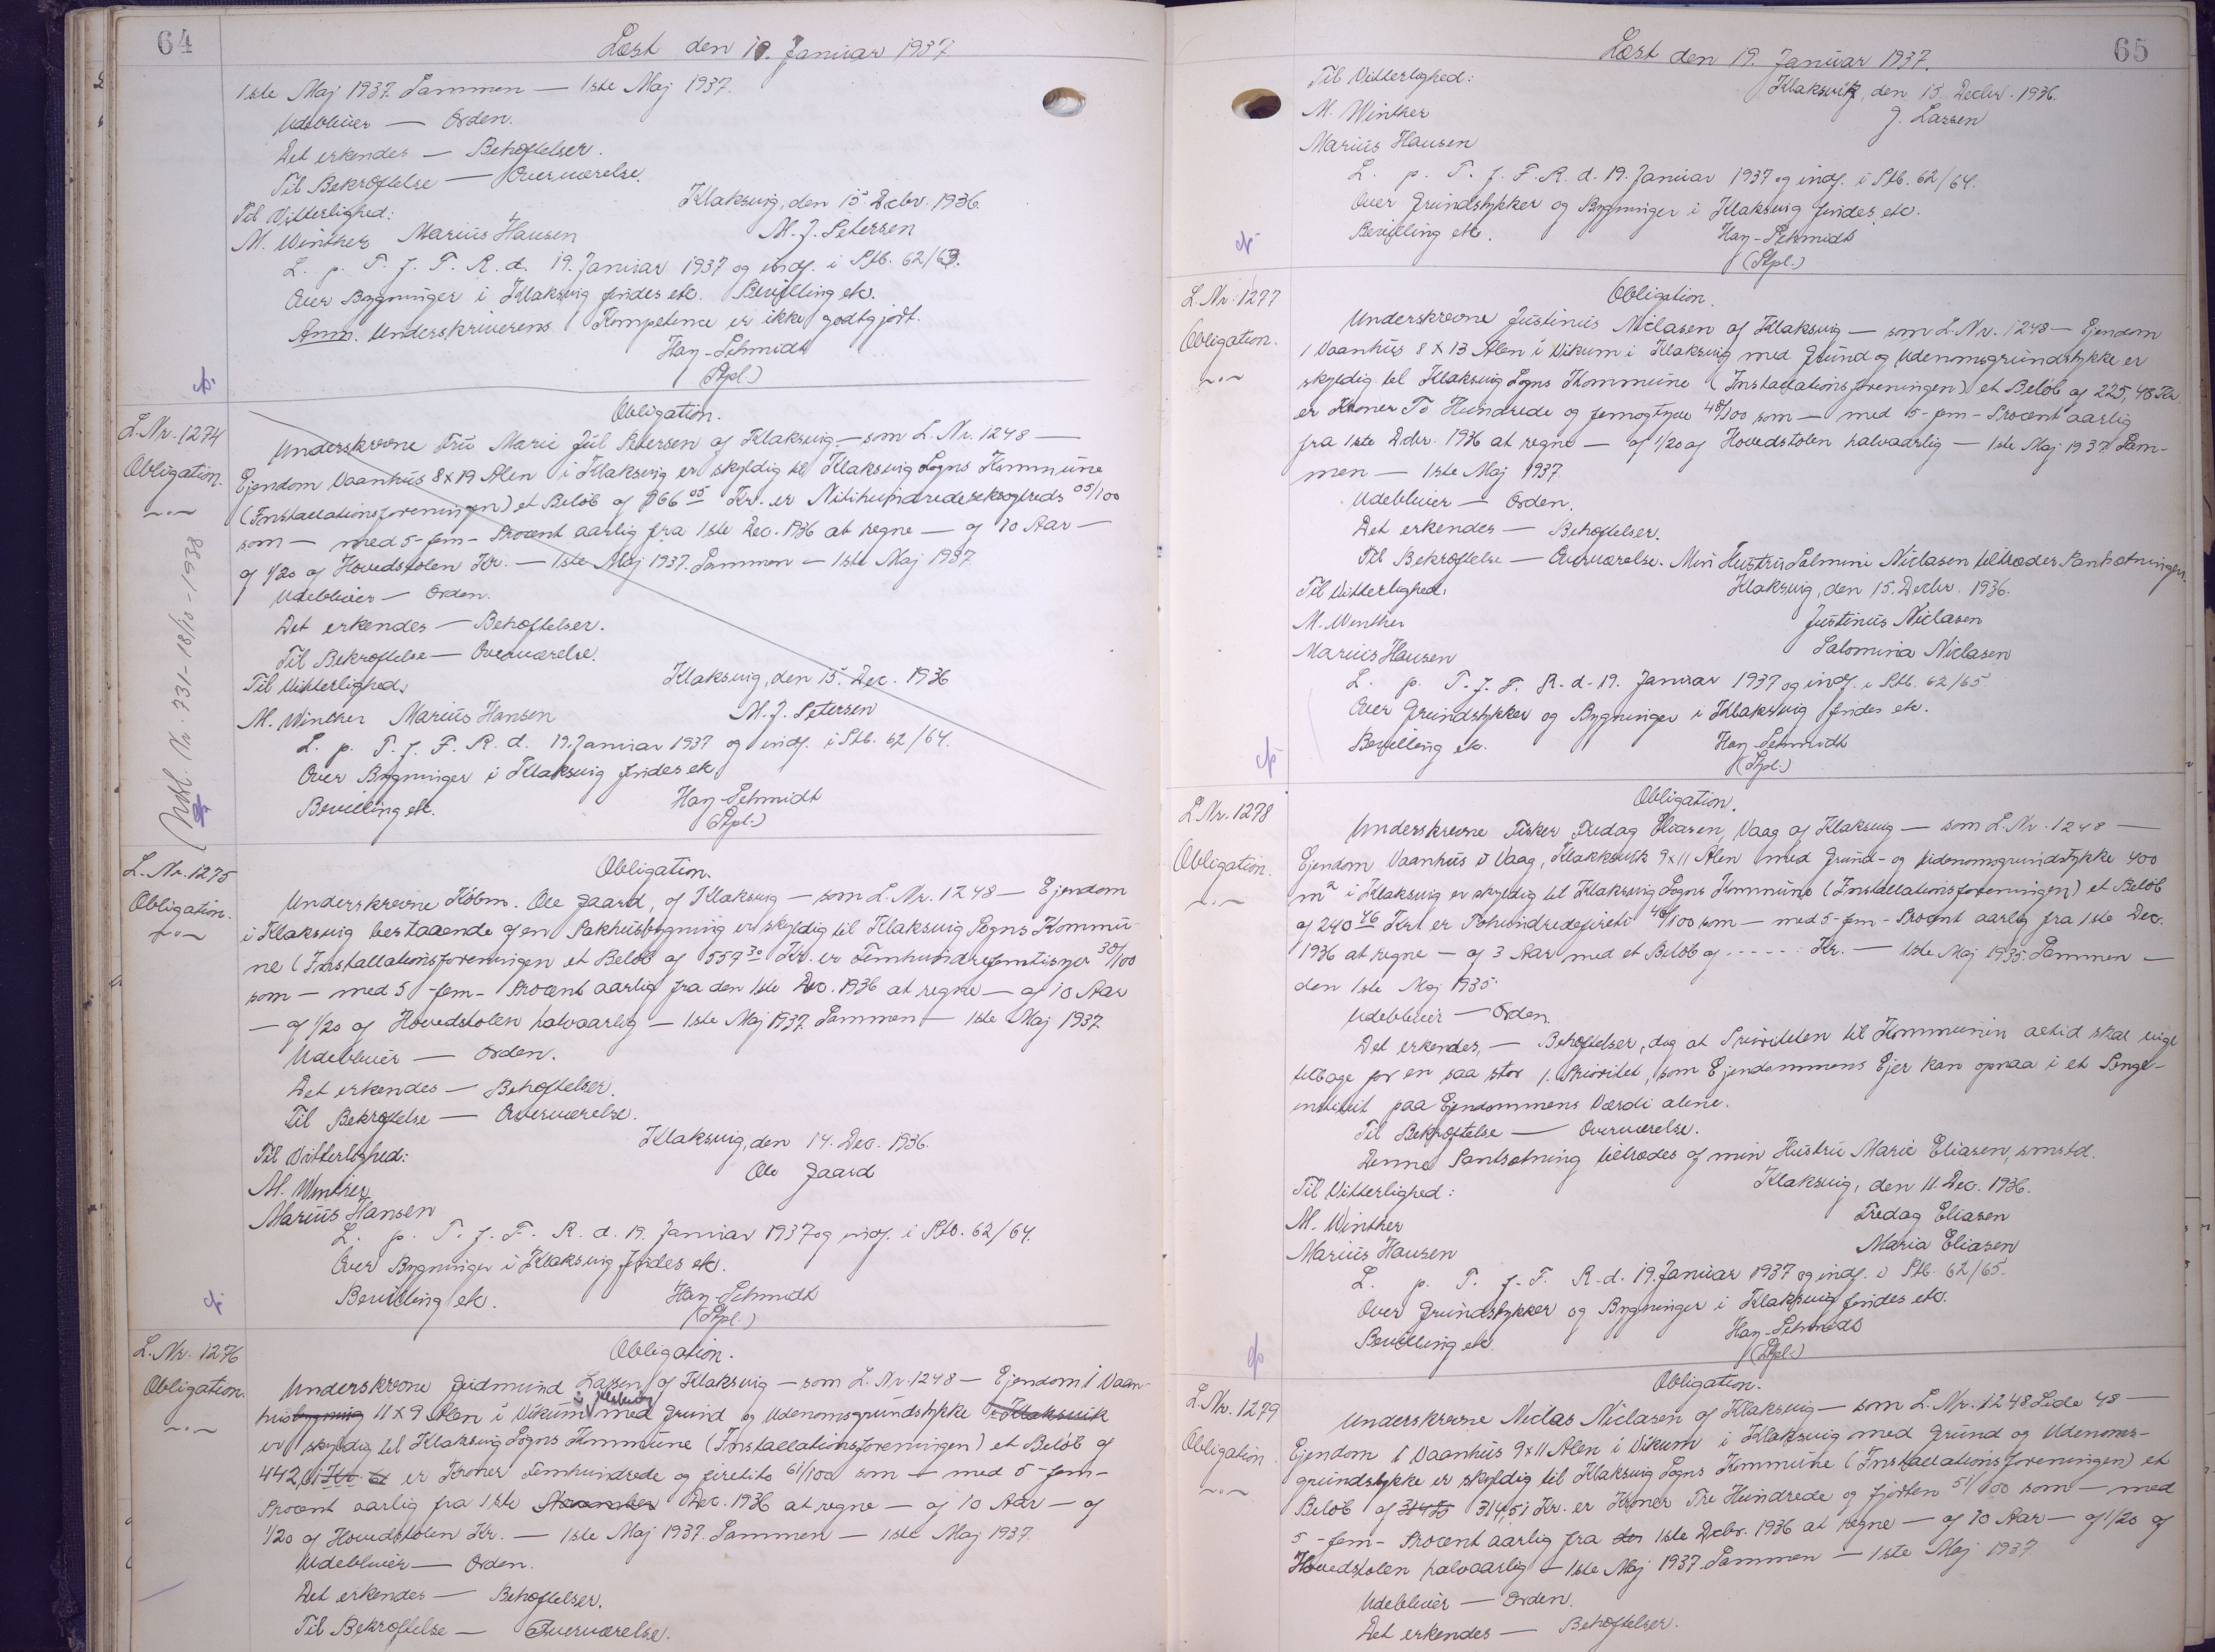 64
Læst den 19. Januar 1937
1ste Maj 1937. Sammen — 1ste Maj 1937.
Udebliver — Orden.
Det erkendes — Behæftelser.
Til Bekræftelse — Overværelse.
Klaksvig, den 15 Decbr. 1936
Til Vitterlighed:
M. J. Petersen
M. Winther Marius Hansen
L. p. T. f. F. R. d. 19. Januar 1937 og indf. i Ptb. 62/63.
Over Bygninger i Klaksvig findes etc. Bevilling etc.
Anm. Underskriverens Kompetence er ikke godtgjort.
Hay-Schmidt
(Stpl.)
L. Nr. 1274
Obligation.
Obligation.
Underskrevne Fru Marie Jul Petersen af Klaksvig — som L. Nr. 1248 —
Ejendom Vaanhus 8x19 Alen i Klaksvig er skyldig til Klaksvig Sogns Kommune
(Installationsforeningen) et Beløb af 966 05 Kr. er Nihundrederseksogtreds 05/100
som — med 5 - fem - Procent aarlig fra 1ste Dec. 1936 at regne — af 10 Aar —
af 1/20 af Hovedstolen Kr. — 1ste Maj 1937. Sammen — 1ste Maj 1937
Udebliver — Orden.
Det erkendes — Behæftelser.
Til Bekræftelse — Overværelse.
Klaksvig, den 15. Dec. 1936
Til Vitterlighed.
M. Winther Marius Hansen
M. J. Petersen
L. p. T. f. F. R. d. 19. Januar 1937 og indf. i Ptb. 62/64.
Over Bygninger i Klaksvig findes etc
Bevilling etc.
Hay-Schmidt
(Stpl.)
Nr. 731-18/10-1938
L. Nr. 1275
Obligation.
Obligation.
Underskrevne Købm. Ole Jaard, af Klaksvig — som L. Nr. 1248 — Ejendom
i Klaksvig bestaaende af en Pakhusbygning er skyldig til Klaksvig Sogns Kommu-
ne (Installationsforeningen et Beløb af 557 30 Kr. er Femhundredfemtisyv 30/100
som — med 5 - fem - Procent aarlig fra den 1ste Dec. 1936 at regne — af 10 Aar
— af 1/20 af Hovedstolen halvaarlig — 1ste Maj 1937. Sammen — 1ste Maj 1937.
Udebliver — Orden.
Det erkendes — Behæftelser.
Til Bekræftelse — Overværelse.
Klaksvig, den 14. Dec. 1936.
Til Vitterlighed:
Ole Jaard
M. Winther
Marius Hansen
L. p. T. f. F. R. d. 19. Januar 1937 og indf. i Ptb. 62/64.
Over Bygninger i Klaksvig findes etc.
Bevilling etc.
Hay-Schmidt
(Stpl.)
L. Nr. 1276
Obligation.
Obligation.
Underskrevne Gudmund Lassen af Klaksvig — som L. Nr. 1248 — Ejendom 1 Vaan-
husbygning 11 x 9 Alen i Vikum i Klaksvig med Grund og Udenomsgrundstykke i Klaksvik
er skyldig til Klaksvig Sogns Kommune (Installationsforeningen) et Beløb af
442,61 Kr. 61 er Kroner Femhundrede og firetito 61/100 som — med 5 - fem -
Procent aarlig fra 1ste November Dec. 1936 at regne — af 10 Aar — af
1/20 af Hovedstolen Kr. — 1ste Maj 1937. Sammen — 1ste Maj 1937.
Udebliver — Orden.
Det erkendes — Behæftelser.
Til Bekræftelse — Overværelse.
65
Læst den 19. Januar 1937.
Til Vitterlighed:
Klaksvik, den 15. Decbr. 1936.
M. Winther
J. Lassen
Marius Hansen
L. p. T. f. F. R. d. 19. Januar 1937 og indf. i Ptb. 62/64.
Over Grundstykker og Bygninger i Klaksvig findes etc.
Bevilling etc.
Hay-Schmidt
(Stpl.)
L. Nr. 1277
Obligation.
Obligation.
Underskrevne Justinus Niclasen af Klaksvig — som L. Nr. 1248 — Ejendom
1 Vaanhus 8 x 13 Alen i Vikum i Klaksvig med Grund og Udenomsgrundstykke er
skyldig til Klaksvig Sogns Kommune (Installationsforeningen) et Beløb af 225,48 Kr.
er Kroner To Hundrede og femogtyve 48/100 som — med 5 - fem - Procent aarlig
fra 1ste Dcbr. 1936 at regne — af 1/20 af Hovedstolen halvaarlig — 1ste Maj 1937. Sam-
men — 1ste Maj 1937.
Udebliver — Orden.
Det erkendes — Behæftelser.
Til Bekræftelse — Overværelse. Min Hustru Salmine Niclasen tiltræder Pantsætningen.
Til Vitterlighed.
Klaksvig, den 15. Decbr. 1936.
M. Winther
Justinus Niclasen
Marius Hansen
Salomina Niclasen
L. p. T. f. F. R. d. 19. Januar 1937 og indf. i Ptb. 62/65.
Over Grundstykker og Bygninger i Klaksvig findes etc.
Bevilling etc.
Hay-Schmidt
(Stpl.)
L. Nr. 1278
Obligation.
Obligation.
Underskrevne Fisker Fredag Eliasen, Vaag af Klaksvig — som L. Nr. 1248 —
Ejendom Vaanhus i Vaag, Klakksvik 9x11 Alen med Grund- og Udenomsgrundstykke 400
m² i Klaksvig er skyldig til Klaksvig Sogns Kommune (Installationsforeningen) et Beløb
af 240 46 Kr. er Tohundredefireti 46/100 som — med 5 - fem - Procent aarlig fra 1ste Dec.
1936 at regne — af 3 Aar med et Beløb af ..... Kr. — 1ste Maj 1935. Sammen —
den 1ste Maj 1935.
Udebliver — Orden.
Det erkendes, — Behæftelser, dog at Prioriteten til Kommunen altid skal vige
tilbage for en saa stor 1. Prioritet, som Ejendommens Ejer kan opnaa i et Penge-
institut paa Ejendommens Værdi alene.
Til Bekræftelse — Overværelse.
Denne Pantsætning tiltrædes af min Hustru Marie Eliasen, smstd.
Til Vitterlighed:
Klaksvig, den 11. Dec. 1936.
M. Winther
Fredag Eliasen
Marius Hansen
Maria Eliasen
L. p. T. f. F. R. d. 19. Januar 1937 og indf. i Ptb. 62/65.
Over Grundstykker og Bygninger i Klaksvig findes etc.
Bevilling etc.
Hay-Schmidt
(Stpl.)
L. Nr. 1279
Obligation.
Obligation.
Underskrevne Niclas Niclasen af Klaksvig — som L. Nr. 1248 Side 48 —
Ejendom 1 Vaanhus 9x11 Alen i Vikum i Klaksvig med Grund og Udenoms-
grundstykke er skyldig til Klaksvig Sogns Kommune (Installationsforeningen) et
Beløb af 314,51 Kr. er Kroner Tre Hundrede og fjorten 51/100 som — med
5 - fem - Procent aarlig fra den 1ste Dcbr. 1936 at regne — af 10 Aar — af 1/20 af
Hovedstolen halvaarlig — 1ste Maj 1937. Sammen — 1ste Maj 1937.
Udebliver — Orden.
Det erkendes — Behæftelser.